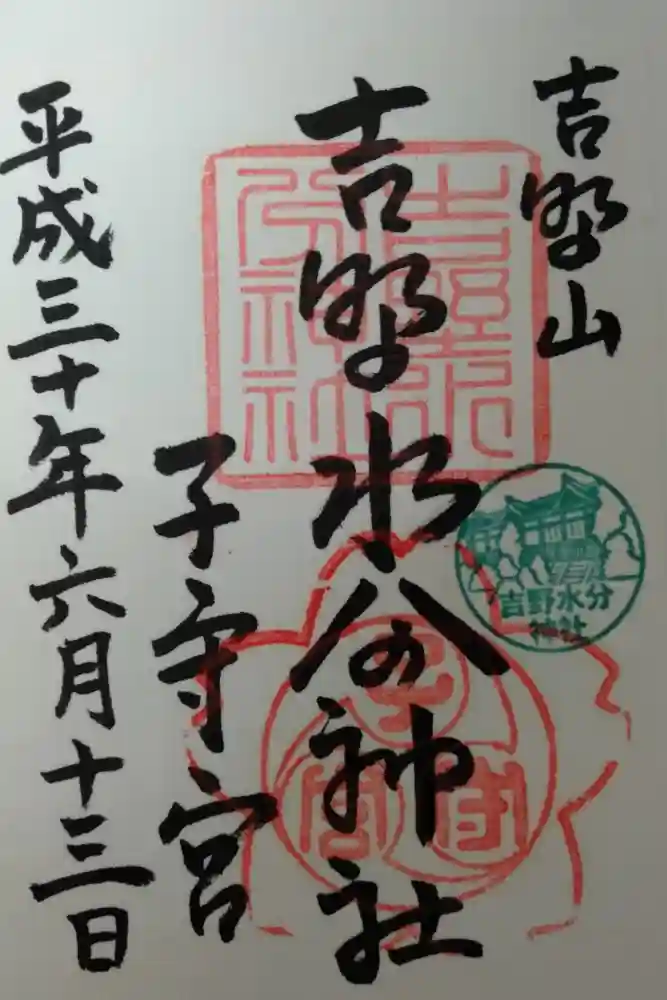 吉野山
吉野水分神社
子守宮
平成三十年六月十三日
吉野水分神社
子守宮
吉野水分
神社